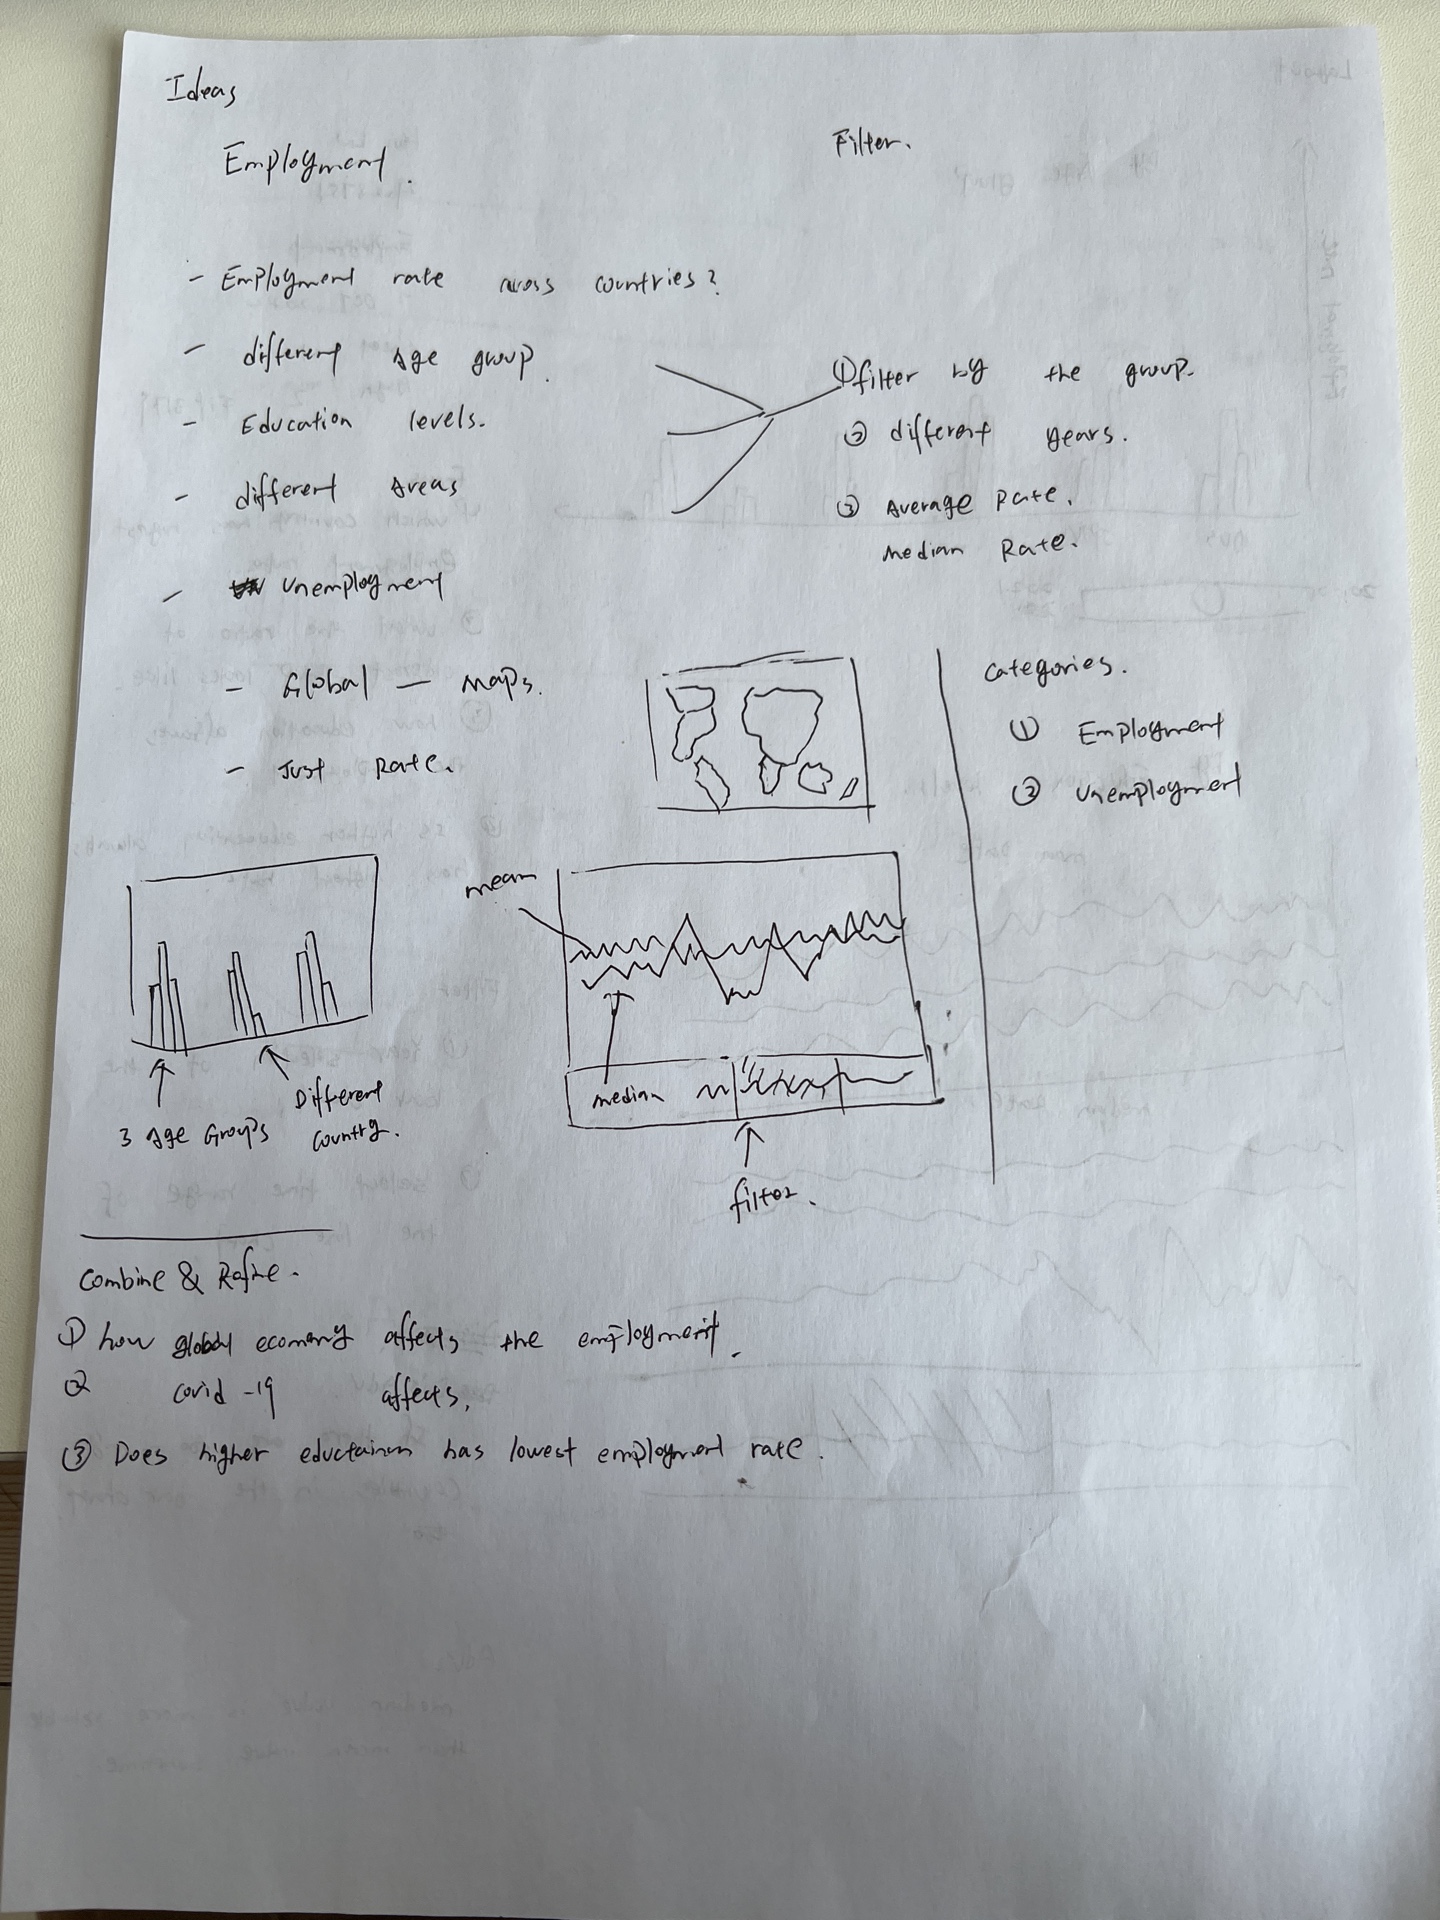 Ideas
Employment.
- Employment rate across countries?
- different Age group.
- Education levels.
- different Areas
- Unemployment
- Global - Maps.
- Just Rate.
Filter.
① filter by the group.
② different years.
③ Average Rate.
Median Rate.
Categories.
① Employment
② Unemployment
3 Age Groups
Different
Country.
mean
median
filter.
Combine & Refine.
① how global economy affects the employment.
② covid-19 affects.
③ Does higher eductainon has lowest employment rate.